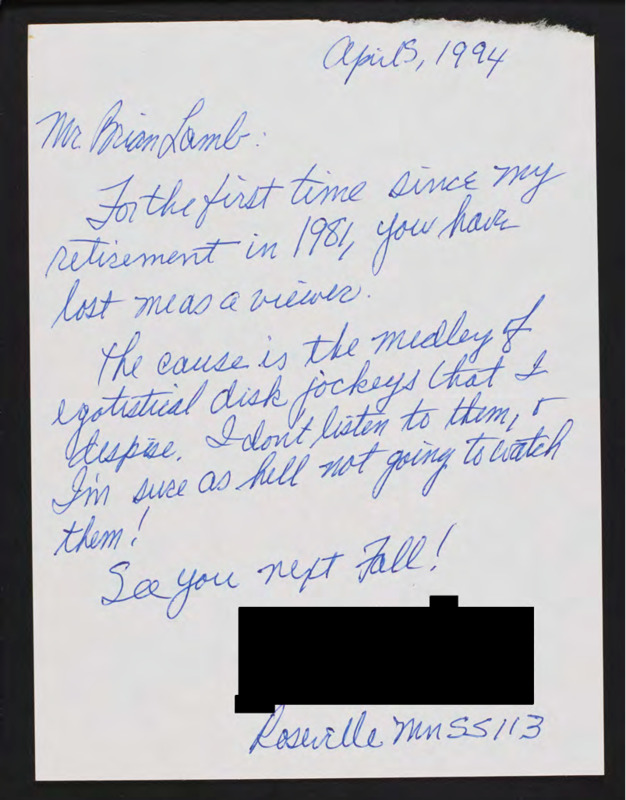 April 5, 1994
Mr. Brian Lamb:
For the first time since my
retirement in 1981, you have
lost me as a viewer.
The cause is the medley of
egotistical disk jockeys that I
despise. I don't listen to them, &
I'm sure as hell not going to watch
them!
See you next Fall!
Roseville Mn 55113